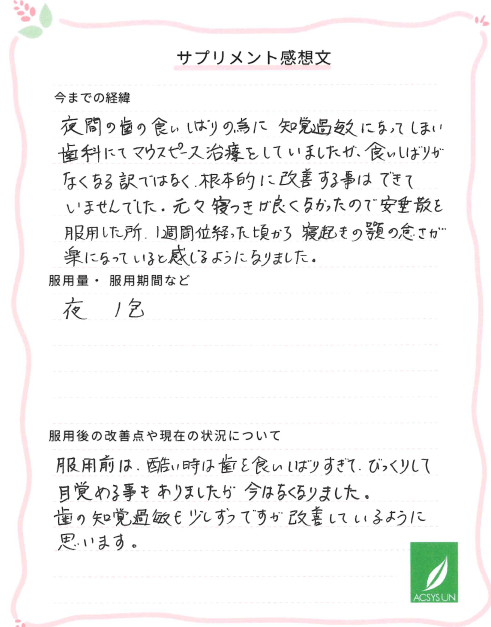 サプリメント感想文
今までの経緯
夜間の歯の食いしばりの為に 知覚過敏になってしまい
歯科にてマウスピース治療をしていましたが、食いしばりが
なくなる訳ではなく、根本的に改善する事はできて
いませんでした。元々寝つきが良くなかったので安垂散を
服用した所、1週間位経った頃から 寝起きの顎の怠さが
楽になっていると感じるようになりました。
服用量・服用期間など
夜 1包
服用後の改善点や現在の状況について
服用前は、酷い時は歯を食いしばりすぎて、びっくりして
目覚める事もありましたが 今はなくなりました。
歯の知覚過敏も少しずつですが改善しているように
思います。
ACSYS UN